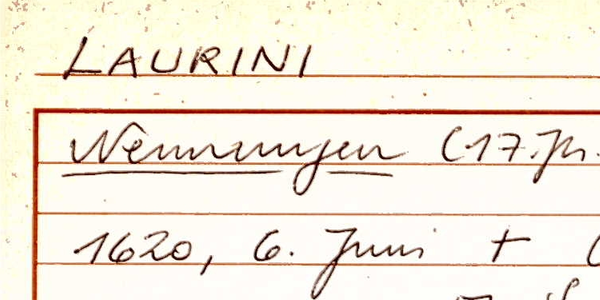 LAURINI
Nennungen (17. Jh.
1620, 6. Juni †